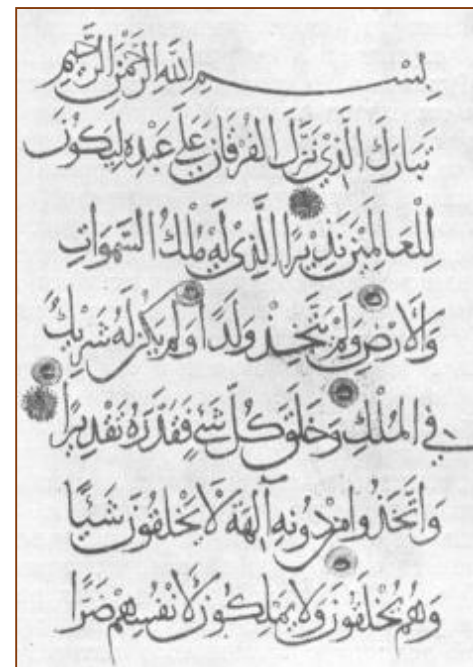 بِسْمِ اللهِ الرَّحْمٰنِ الرَّحِيْمِ
تَبَارَكَ الَّذِيْ نَزَّلَ الْفُرْقَانَ عَلَى عَبْدِهِ لِيَكُوْنَ
لِلْعَالَمِيْنَ نَذِيْرًا الَّذِيْ لَهُ مُلْكُ السَّمٰوَاتِ
وَالْاَرْضِ وَلَمْ يَتَّخِذْ وَلَدًا وَلَمْ يَكُنْ لَهُ شَرِيْكٌ
فِي الْمُلْكِ وَخَلَقَ كُلَّ شَيْءٍ فَقَدَّرَهُ تَقْدِيْرًا
وَاتَّخَذُوا مِنْ دُوْنِهِ آلِهَةً لَا يَخْلُقُوْنَ شَيْئًا
وَهُمْ يُخْلَقُوْنَ وَلَا يَمْلِكُوْنَ لِاَنْفُسِهِمْ ضَرًّا